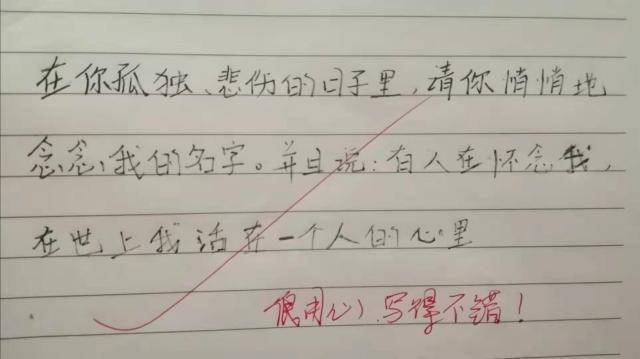 在你孤独、悲伤的日子里,请你悄悄地
念念我的名字。并且说:有人在怀念我,
在世上我活在一个人的心里
很用心,写得不错!